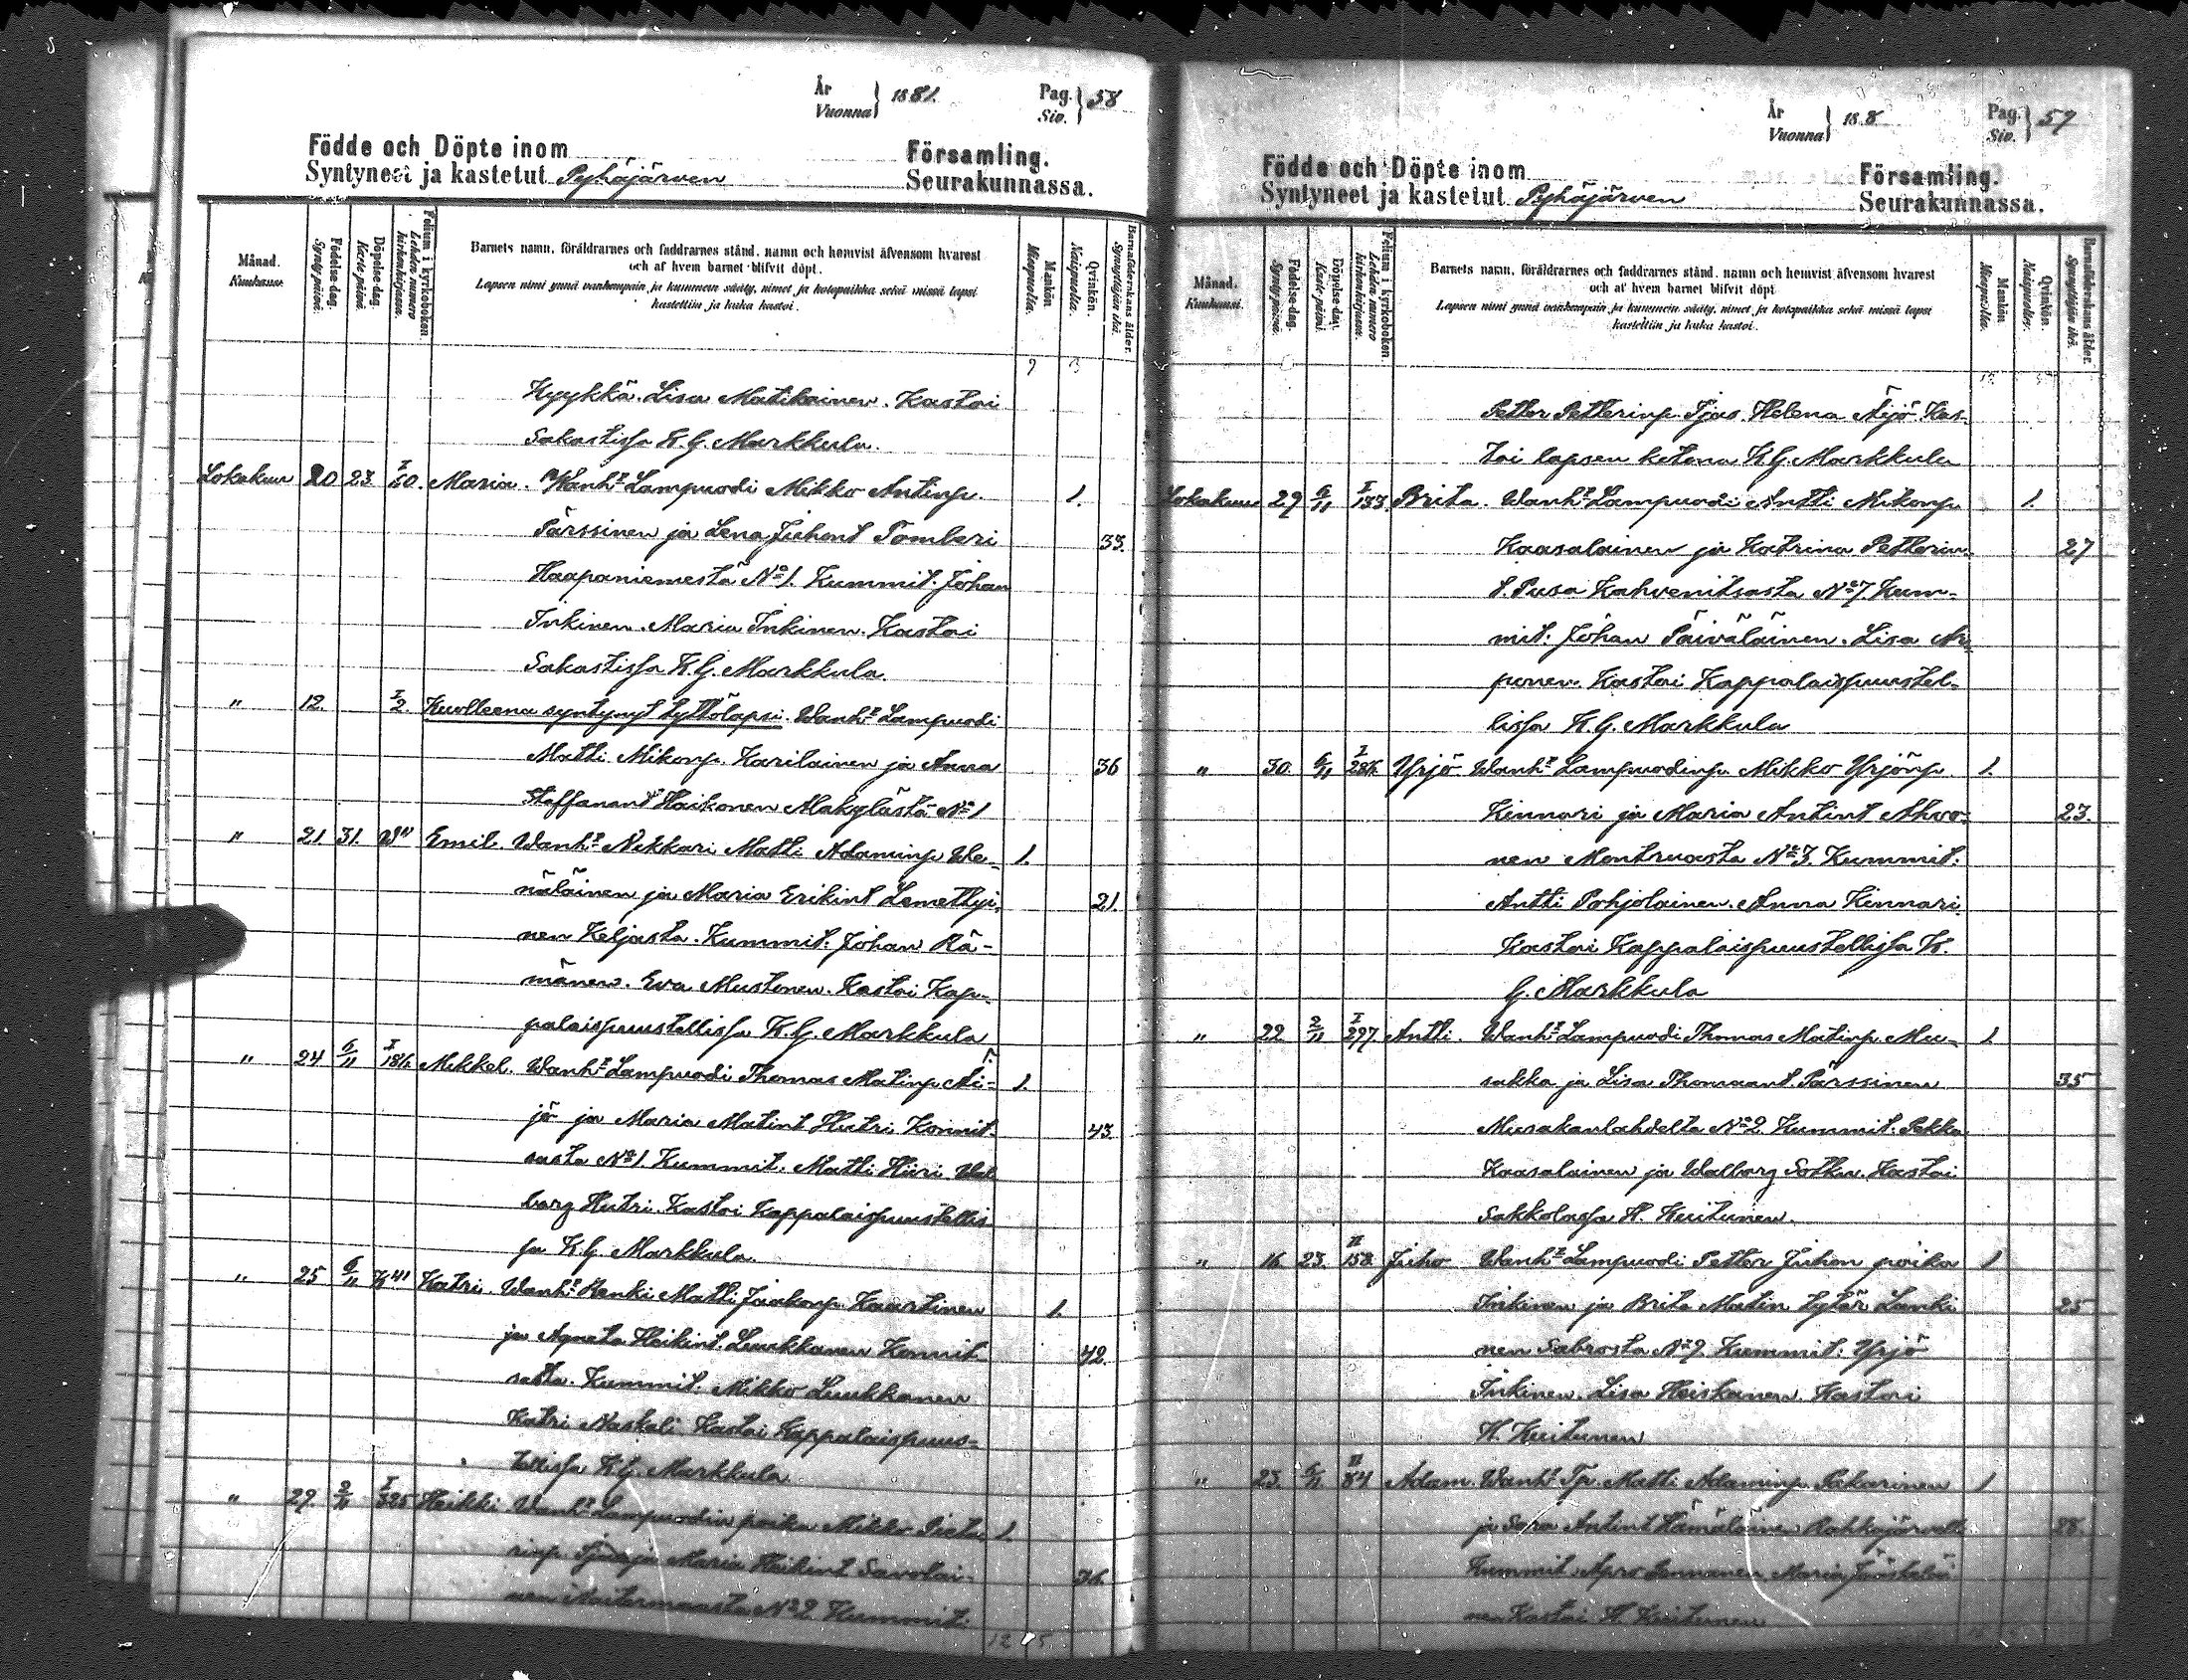 År
Vuonna } 1881.
Pag.
Siv. } 58
Födde och Döpte inom
Församling.
Syntyneet ja kastetut Pyhäjärven
Seurakunnassa.
Månad.
Kuukausi.
Födelse-dag.
Syntypäivä.
Döpelse-dag.
Kaste-päivä.
Folium i kyrkoboken.
Lehden numero kirkonkirjassa.
Barnets namn, föräldrarnes och faddrarnes stånd, namn och hemvist äfvensom hvarest
och af hvem barnet blifvit döpt.
Lapsen nimi ynnä vanhempain ja kummein sääty, nimet ja kotopaikka sekä missä lapsi
kastettiin ja kuka kastoi.
Mankön.
Miespuolia.
Qvinkön.
Naispuolia.
Barnaföderskans ålder.
Synnyttäjän ikä.
Hyykkä. Lisa Matikainen. Kastoi
Sakastissa K. G. Markkula.
Lokakuu 20 23 I 50. Maria. Wanht Lampuodi Mikko Antinp. 1.
Pärssinen ja Lena Juhont Tomberi 33.
Haapaniemestä No 1. Kummit. Johan
Inkinen. Maria Inkinen. Kastoi
Sakastissa K. G. Markkula.
" 12. I 2. Kuolleena syntynyt tyttölapsi. Wanht Lampuodi
Matti Mikonp. Karilainen ja Anna 36
Staffanant Haikonen Alakylästä No 1
" 21 31. Emil. Wanht Nikkari Matti Adaminp We- 1.
näläinen ja Maria Erikint Lemettyi- 21.
nen Keljasta. Kummit: Johan Rä-
mänen. Eva Mustonen. Kastoi Kap-
palaispuustellissa K. G. Markkula
" 24 6/11 I 186 Mikkel. Wanht Lampuodi Thomas Matinp. Äi- 1.
jö ja Maria Matint Hutri Konnit- 43.
sasta No 1. Kummit. Matti Hiiri. Wal
borg Hutri. Kastoi Kappalaispuustellis
sa K. G. Markkula
" 25 6/11 K 41 Katri. Wanht Renki Matti Jaakonp. Kaartinen 1.
ja Agneta Heikint. Luukkanen Konnit 42.
sasta. Kummit. Mikko Luukkanen
Katri Naskali Kastoi Kappalaispuus-
tellissa K. G. Markkula
" 29. 2/11 I 325 Heikki Wanht Lampuodin poika Mikko Piete- 1.
rinp. Ijas ja Maria Heikint Savolai- 36.
nen Noitermaasta No 2. Kummit.
12 5
År
Vuonna } 188
Pag.
Siv. } 59
Födde och Döpte inom
Församling.
Syntyneet ja kastetut Pyhäjärven
Seurakunnassa.
Månad.
Kuukausi.
Födelse-dag.
Syntypäivä.
Döpelse-dag.
Kaste-päivä.
Folium i kyrkoboken.
Lehden numero kirkonkirjassa.
Barnets namn, föräldrarnes och faddrarnes stånd, namn och hemvist äfvensom hvarest
och af hvem barnet blifvit döpt
Lapsen nimi ynnä vanhempain ja kummein sääty, nimet ja kotopaikka sekä missä lapsi
kastettiin ja kuka kastoi.
Mankön
Miespuolia.
Qvinkön.
Naispuolia.
Barnaföderskans ålder.
Synnyttäjän ikä.
Petter Petterinp. Ijas. Helena Äijö. Kas-
toi lapsen kotona K. G. Markkula
Lokakuu 29 6/11 I 133. Brita. Wanht Lampuodi Antti Mikonp. 1.
Kaasalainen ja Katrina Petterin- 27
t. Pusa Kahvenitsasta No 7. Kum-
mit: Johan Päiväläinen. Lisa
ponen. Kastoi Kappalaispuustel-
lissa K. G. Markkula
" 30. 6/11 I 286. Yrjö Wanht Lampuodinp. Mikko Yrjönp. 1.
Kinnari ja Maria Antint Ahvo- 23.
nen Montruasta No 3. Kummit.
Antti Pohjolainen. Anna Kinnari
Kastoi Kappalaispuustellissa K.
G. Markkula
" 22 2/11 I 297. Antti. Wanht Lampuodi Thomas Matinp. Mu- 1.
sakka ja Lisa Thomaant. Pärssinen 35
Musakanlahdelta No 2. Kummit: Pekka
Kaasalainen ja Walborg Sotku. Kastoi
Sakkolassa H. Kuitunen.
" 16 23. II 153. Juho Wanht Lampuodi Petter Juhon poika 1
Inkinen ja Brita Matin tytär Lanki 25
nen Sabrosta No 9. Kummit: Yrjö
Inkinen. Lisa Heiskanen. Kastoi
H. Kuitunen
" 23. 6/11 II 84 Adam. Wanht Matti Adaminp. Pakarinen 1
ja Sara Antint Hämäläinen Rahkajärvelt 38.
Kummit. Apro Jennanen Maria Jääskeläi
nen Kastoi H. Kuitunen